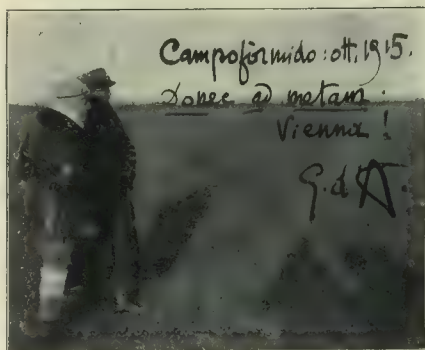 Campoformido: ott. 1915.
Donec ad metam:
Vienna!
G. d'A.